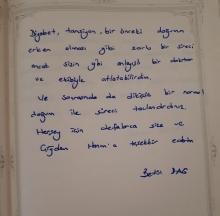 Diyabet, tansiyon, bir önceki doğum
erken olması gibi zorlu bir süreci
ancak sizin gibi anlayışlı bir doktor
ve ekibiyle atlatabilirdim.
Ve sonrasında da dikişsiz bir normal
doğum ile süreci taçlandırdınız.
Herşey için defalarca size ve
Çiğdem Hanım'a teşekkür ederim